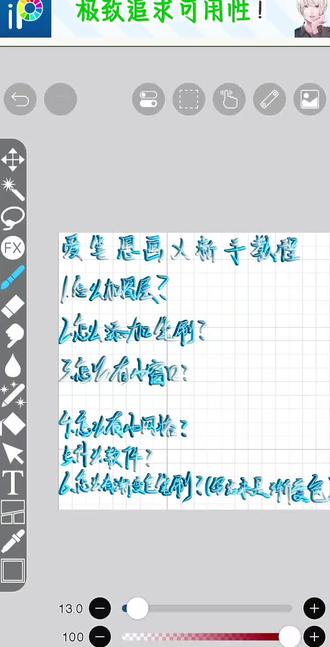 iP
极致追求可用性!
爱笔思画X新手教程
1.怎么加图层?
2.怎么添加笔刷?
3.怎么有小窗口?
4.怎么有小网格?
5.什么软件?
6.怎么有渐变色笔刷?(写出来是渐变色
FX
T
13.0
100